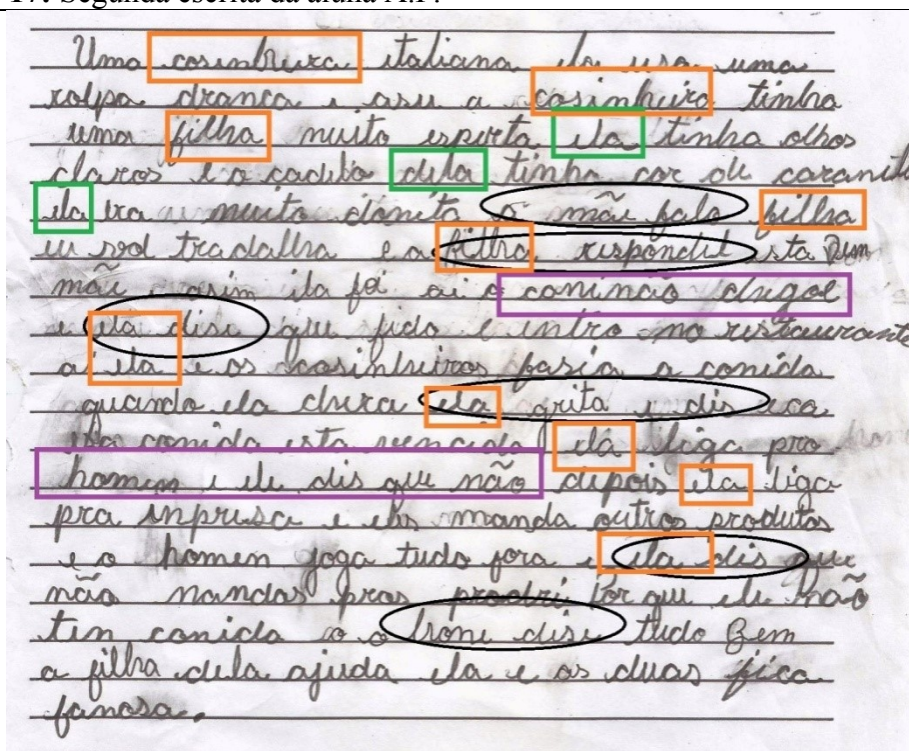 17. Segunda escrita da aluna A.P.
Uma cosinheira italiana ela usa uma
rolpa dranca e asu a cosinheira tinha
uma filha muito esperta ela tinha olhos
claros e o cadelo dela tinha cor de
ela era muito donita o mãe fala filha
eu sod tradalha e a filha respondel esta Bem
mãe asim ela foi ai o caninão chegol
e ela dise que fido e entro no restaurante
ai ela e os cosinheiros fasia a conida
quando ela chera ela grita e dis eca
esa conida esta vencida ela liga pro
homen e ele dis que não depois ela liga
pra inpresa e eles manda outros produtos
e o homen joga tudo fora e ela dis que
não mandas pros prodri Por que ele não
ten conida o o home dise tudo Bem
a filha dela ajuda ela e as duas fica
fanosa.